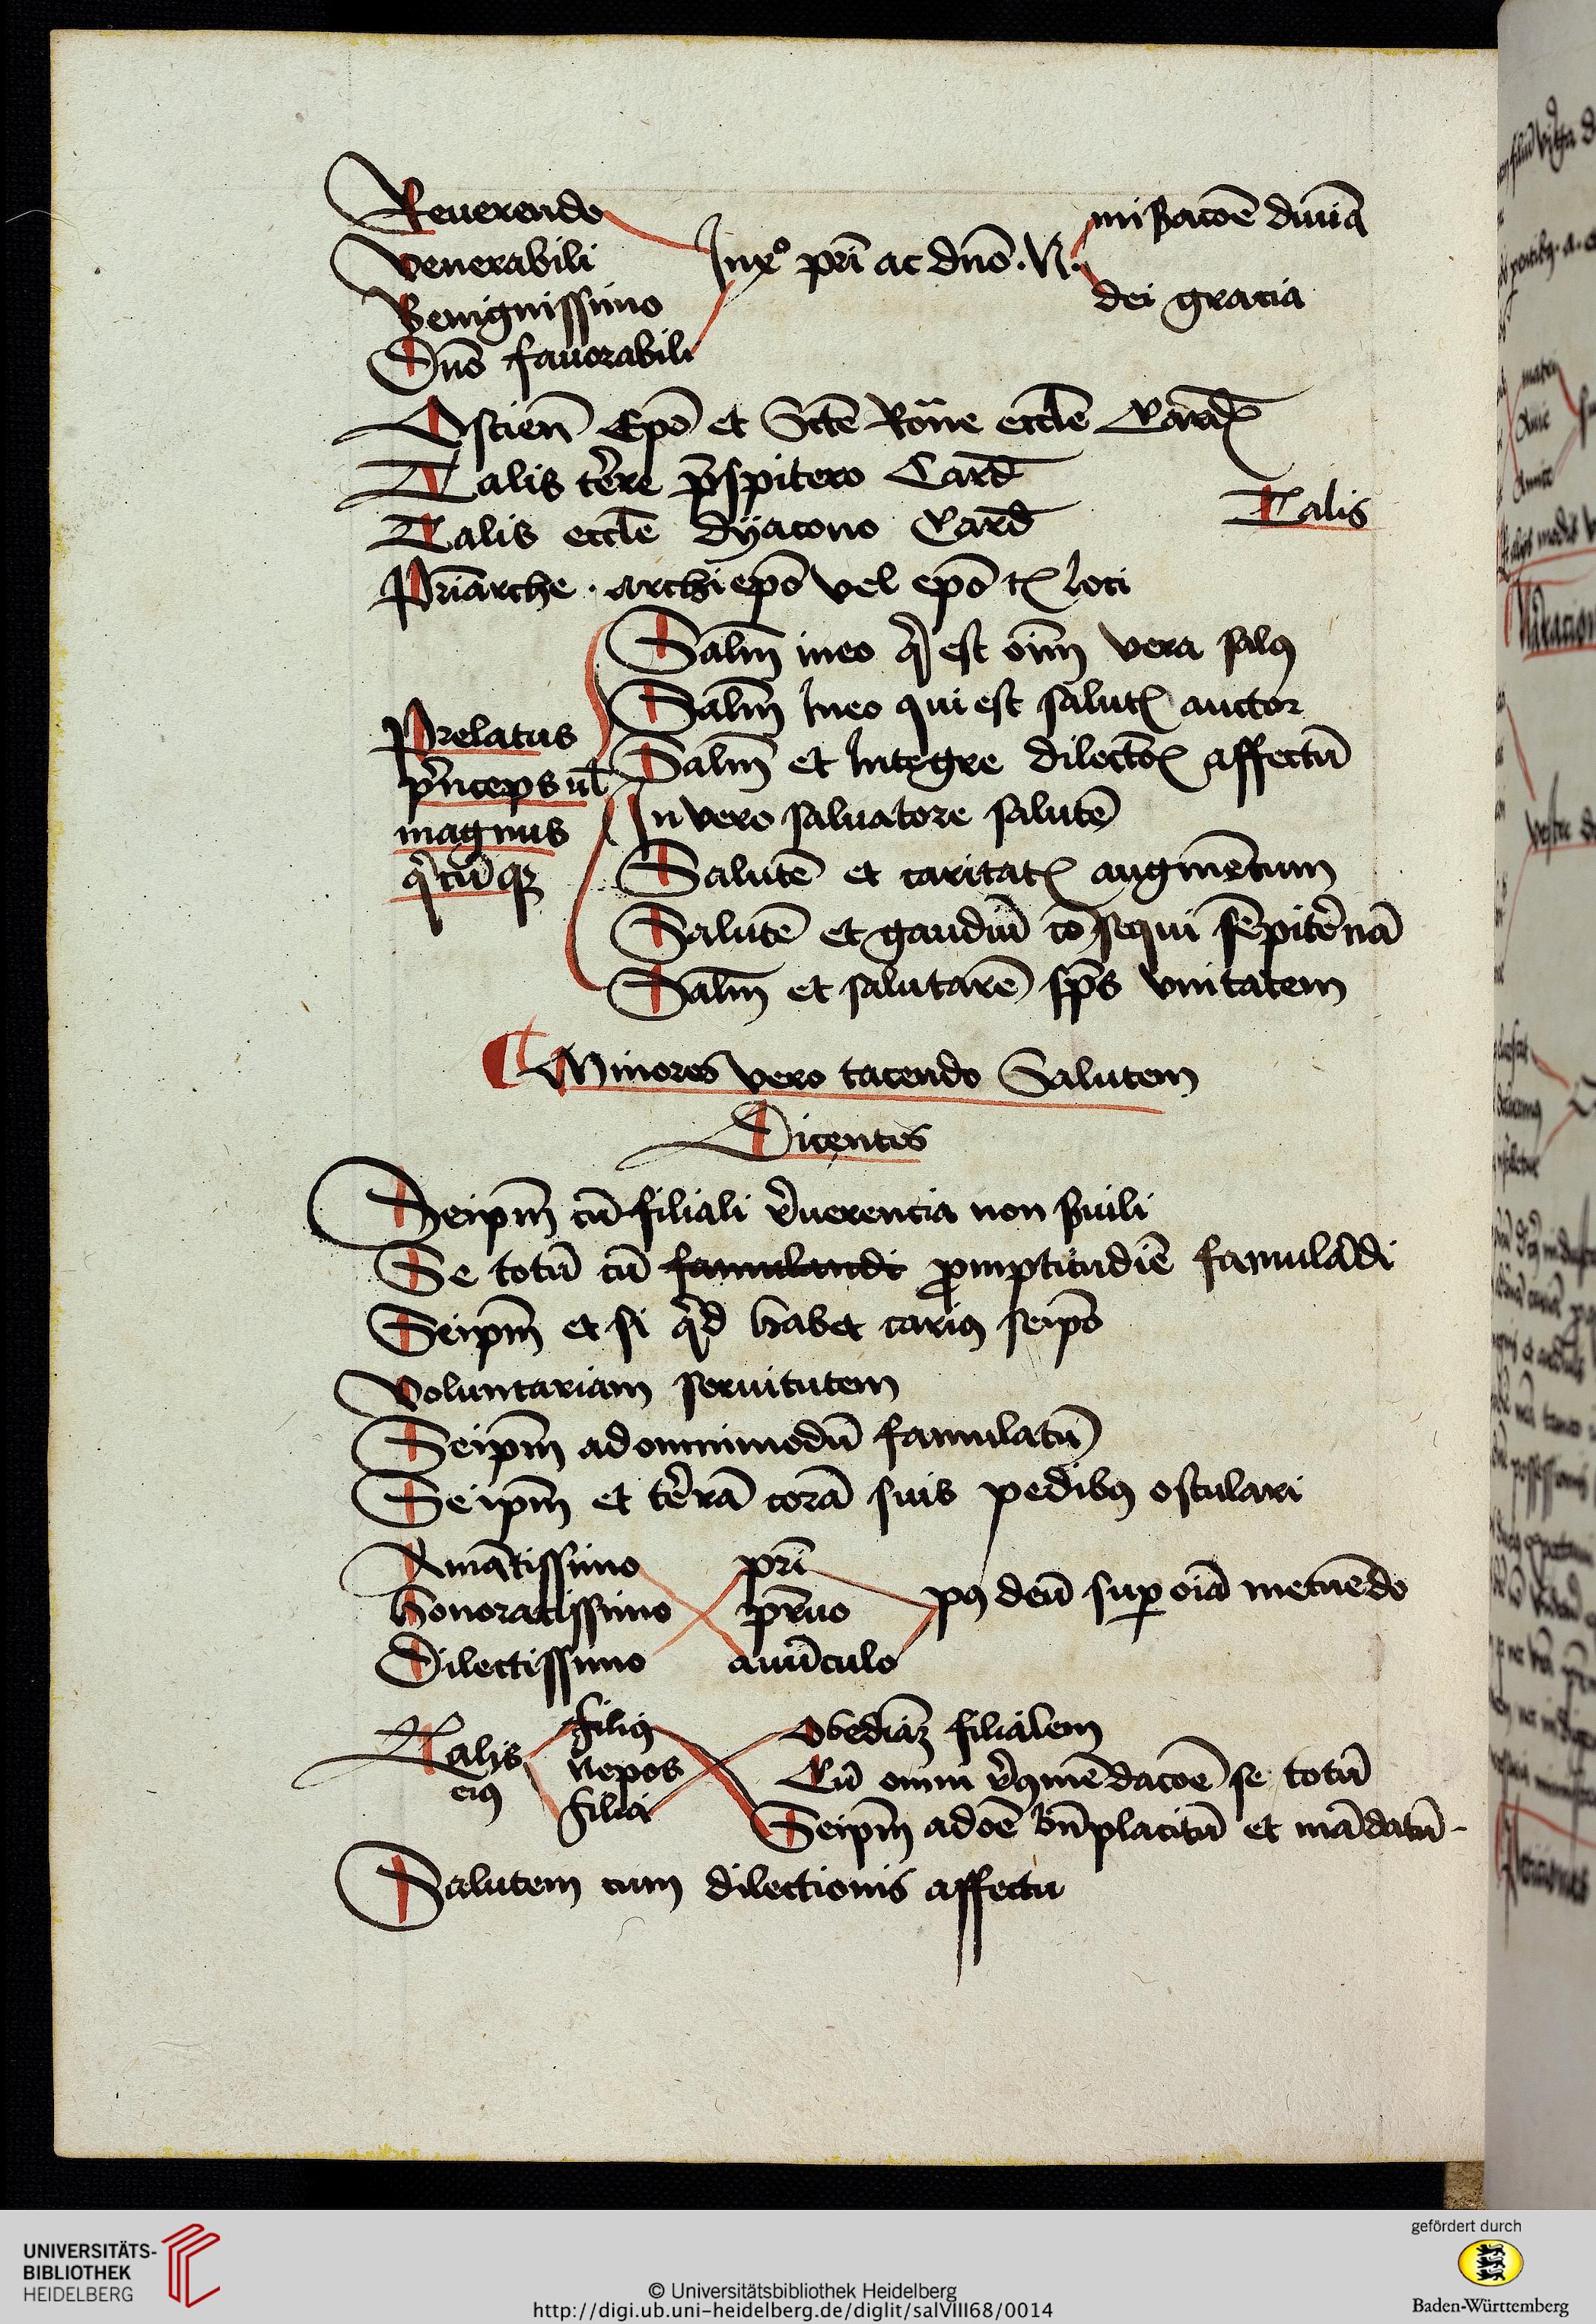 Reuerendo
venerabili
Benignissimo
Dno fauorabili
In xo pri ac dno . N .
misacoe diuia
dei gracia
Ostien Epo et Scte Rone eccle Card
Talis tere prspitero Card
Talis eccle dyacono Card
Talis
Priarche . archiepo vel epo loci
Prelatus
princeps ul
magnus
qicuq
Salm in eo q est oim vera salus
Salm In eo qui est salut auctor
Salm et Integre dilecto affectu
In vero saluatore salute
Salute et caritat augmetum
Salute et gaudiu cosequi sepiterna
Salm et salutare sps vnitatem
Minores vero tacendo Salutem
Dicentes
Seipm cu filiali reuerencia non suili
Se totu cu famulandi promptitudie famuladi
Seipm et si qd habet carius seipo
voluntariam seruitutem
Seipm ad omnimodu famulatu
Seipm et tera cora suis pedibus osculari
Amatissimo
honoratissimo
Dilectissimo
pri
pruo
auuculo
pus deu super oia metuedo
Talis
eius
filius
Nepos
filia
Obediaz filialem
Cu omni recomedacoe se totu
Seipm ad oe bnplacitu et madatu
Salutem cum dilectionis affectu
UNIVERSITÄTS-
BIBLIOTHEK
HEIDELBERG
© Universitätsbibliothek Heidelberg
http://digi.ub.uni-heidelberg.de/diglit/salVIII68/0014
gefördert durch
Baden-Württemberg